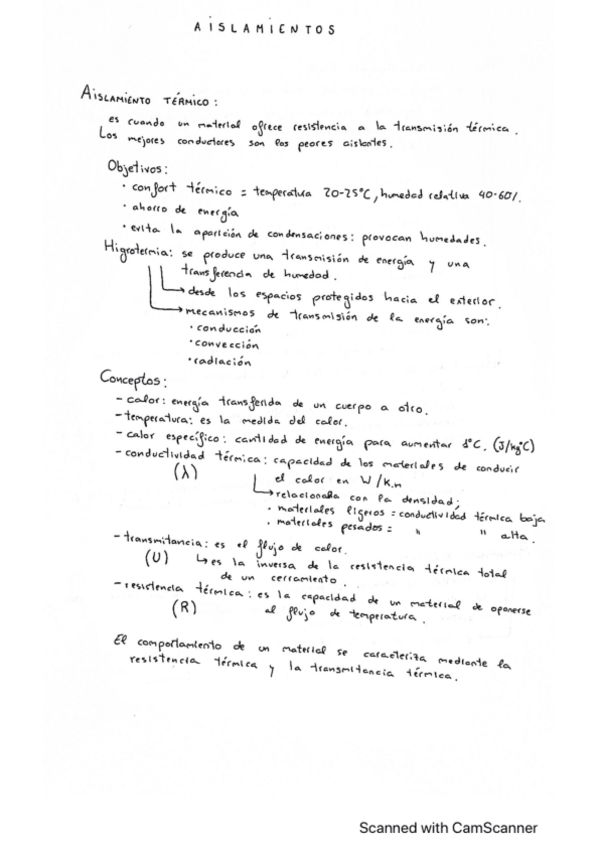 AISLAMIENTOS
AISLAMIENTO TÉRMICO:
es cuando un material ofrece resistencia a la transmisión térmica.
Los mejores conductores son los peores aislantes.
Objetivos:
· confort térmico = temperatura 20-25°C, humedad relativa 40-60%.
· ahorro de energía
· evita la aparición de condensaciones: provocan humedades.
Higrotermia: se produce una transmisión de energía y una
transferencia de humedad.
desde los espacios protegidos hacia el exterior.
mecanismos de transmisión de la energía son:
· conducción
· convección
· radiación
Conceptos:
- calor: energía transferida de un cuerpo a otro.
- temperatura: es la medida del calor.
- calor específico: cantidad de energía para aumentar 1°C. (J/kg°C)
- conductividad térmica: capacidad de los materiales de conducir
(λ) el calor en W/K.m
relacionada con la densidad:
· materiales ligeros = conductividad térmica baja
· materiales pesados = " " alta.
- transmitancia: es el flujo de calor.
(U) es la inversa de la resistencia térmica total
de un cerramiento.
- resistencia térmica: es la capacidad de un material de oponerse
(R) al flujo de temperatura.
El comportamiento de un material se caracteriza mediante la
resistencia térmica y la transmitancia térmica.
Scanned with CamScanner